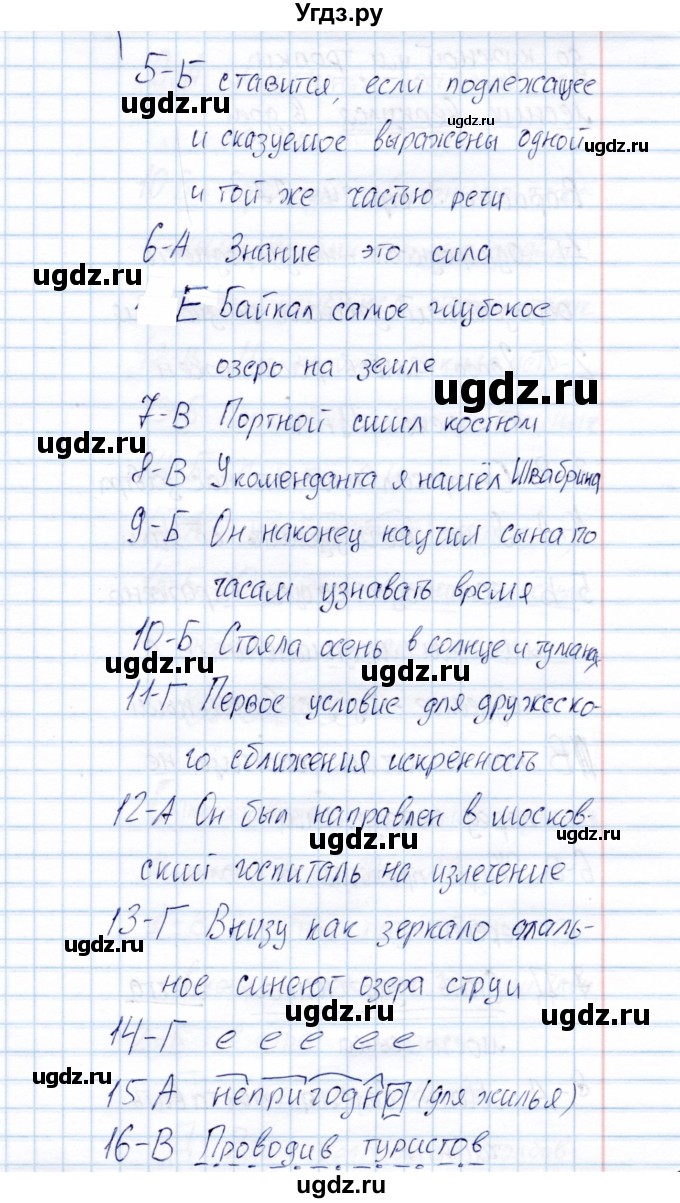 Угдз.ру
5-Б ставится, если подлежащее
ugdz.ru
ugdz.ru
и сказуемое выражены одной
ugdz.ru
и той же частью речи
6-А Знание это сила
ugdz.ru
Е Байкал самое глубокое
озеро на земле
ugdz.ru
7-В Портной сшил костюм
ugdz.ru
8-В У коменданта я нашёл Швабрина
9-Б Он наконец научил сына по
ugdz.ru
ugdz.ru
часам узнавать время
10-Б Стояла осень в солнце и туманах
ugdz.ru
ugdz.ru
11-Г Первое условие для дружеско-
го сближения искренность
12-А Он был направлен в москов-
ugdz.ru
ugdz.ru
ский госпиталь на излечение
13-Г Внизу как зеркало сталь-
ugdz.ru
ugdz.ru
ное синеют озера струи
ugdz.ru
ugdz.ru
14-Г е е е е е
ugdz.ru
15 А непригодно (для жилья)
16-В Проводив туристов
ugdz.ru
ugdz.ru